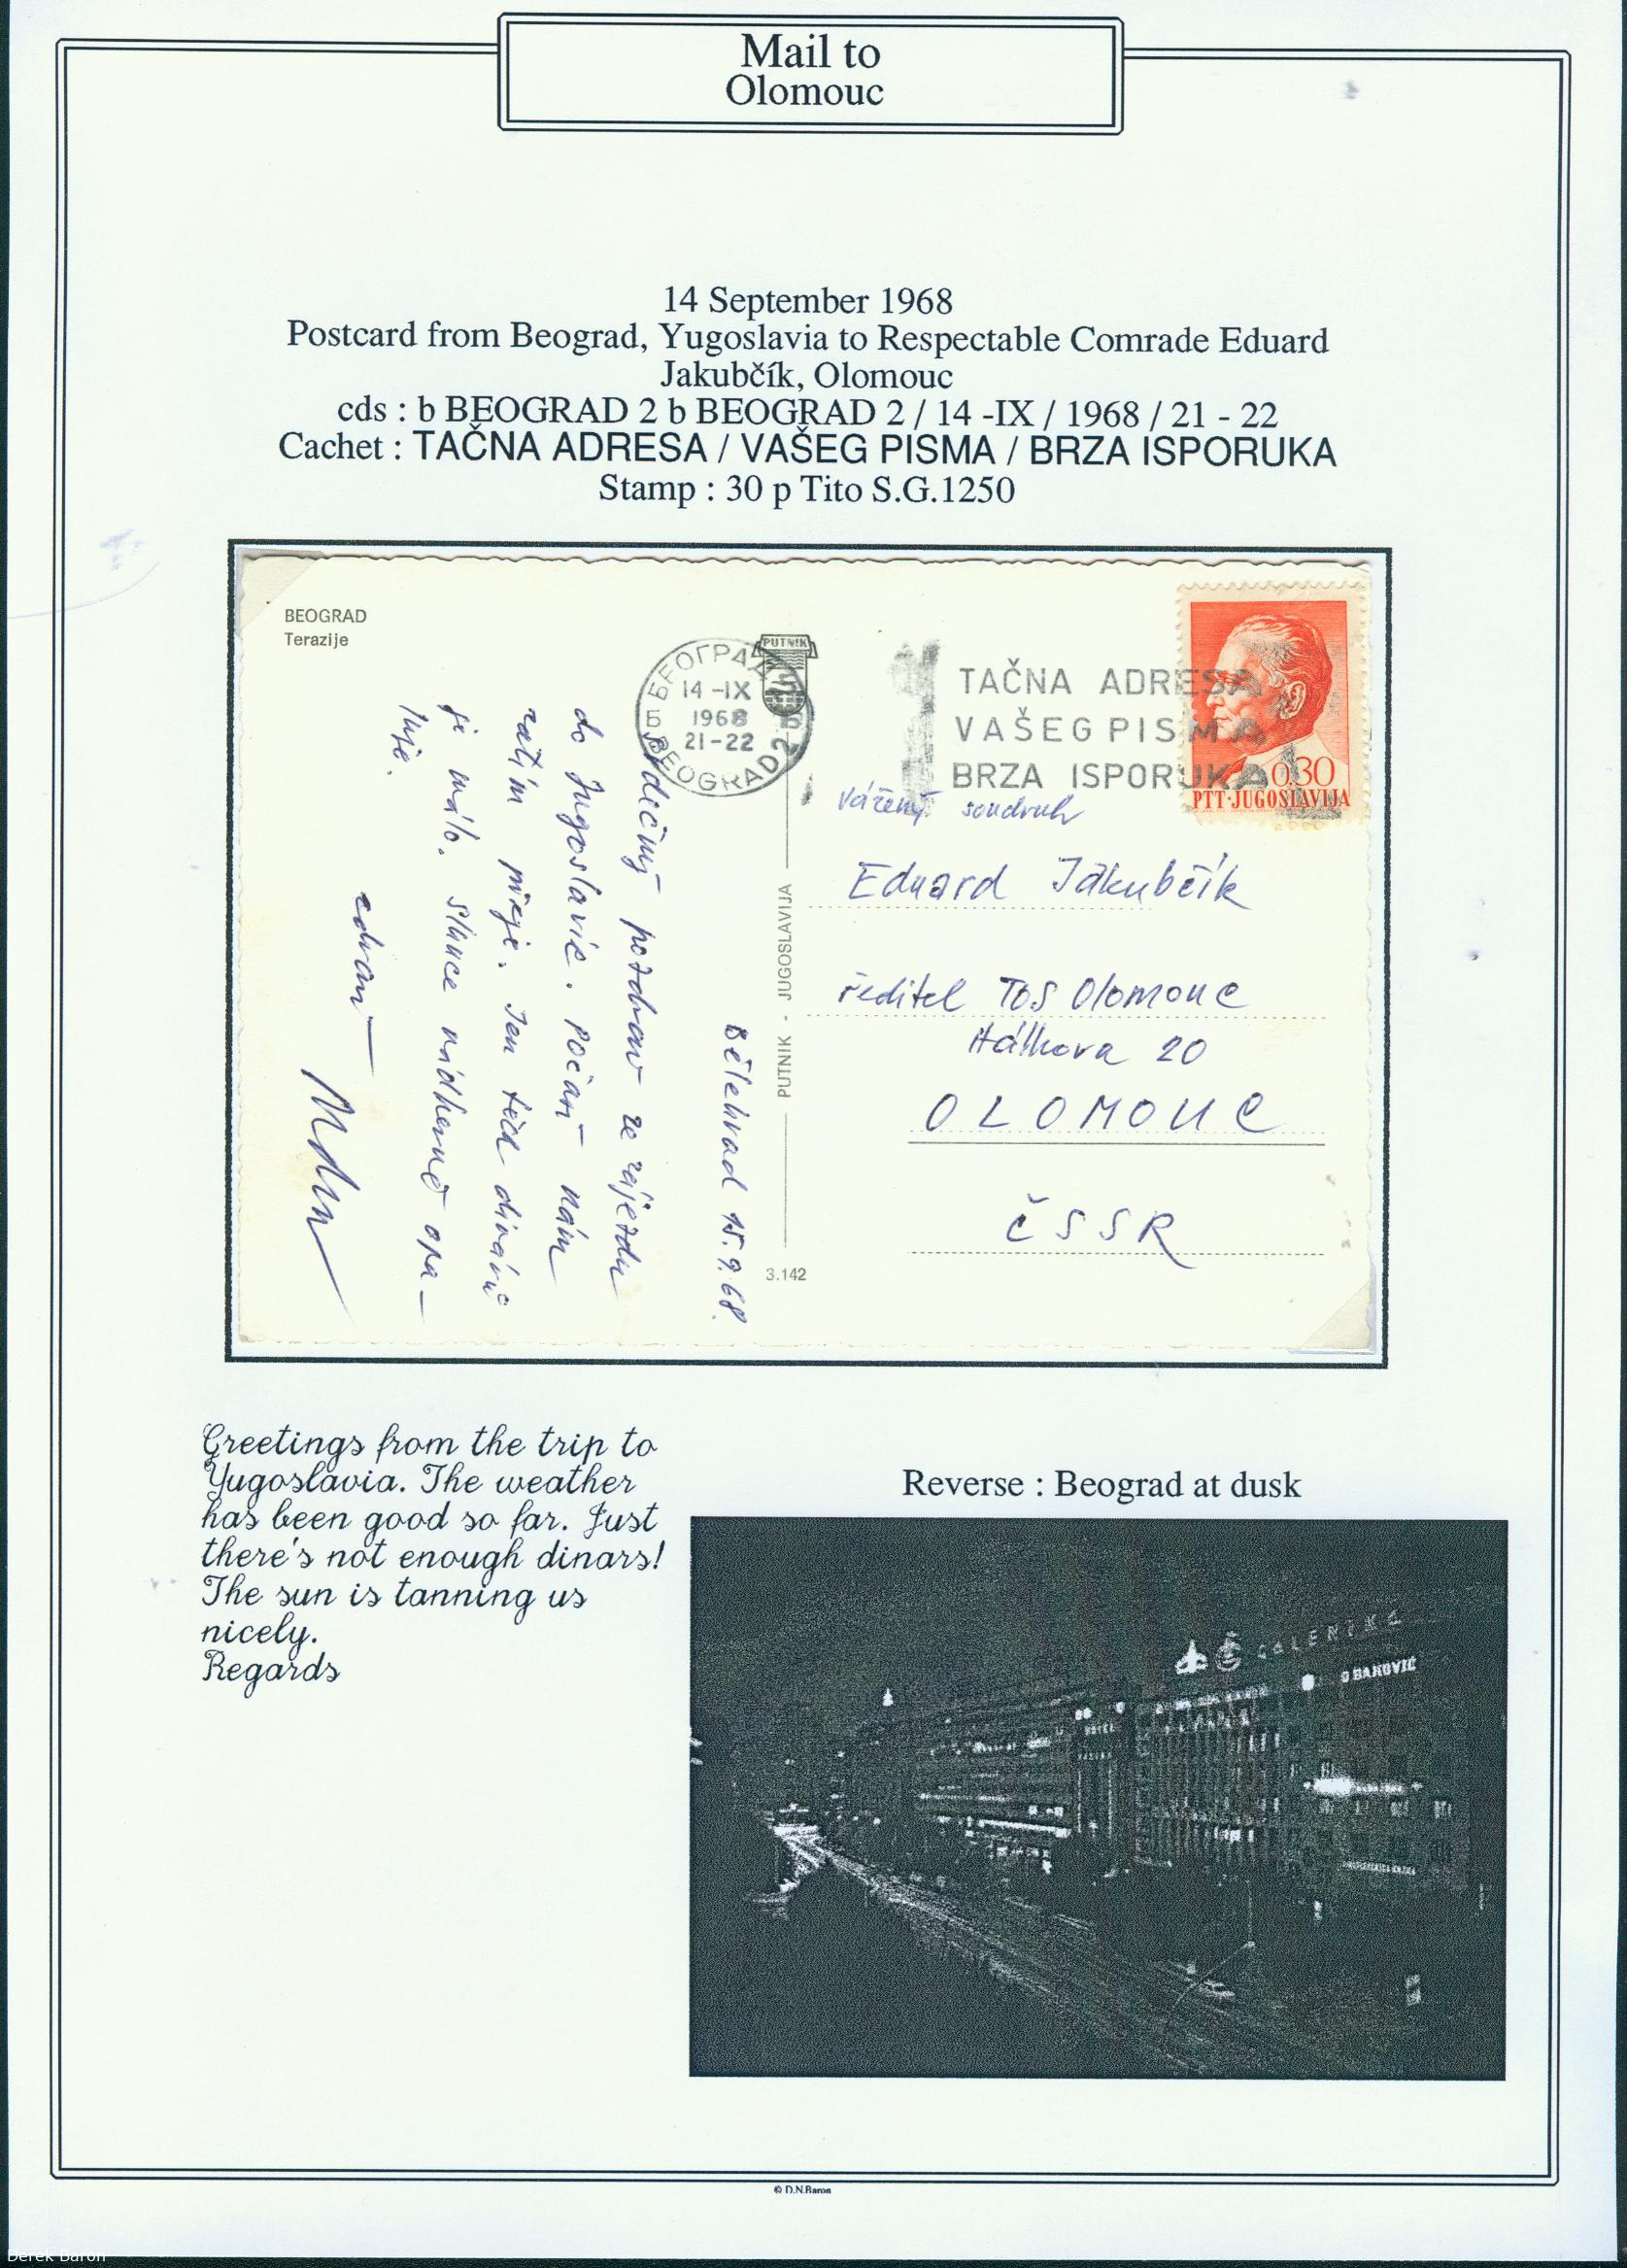 Mail to
Olomouc
14 September 1968
Postcard from Beograd, Yugoslavia to Respectable Comrade Eduard
Jakubčík, Olomouc
cds : b BEOGRAD 2 b BEOGRAD 2 / 14 -IX / 1968 / 21 - 22
Cachet : TAČNA ADRESA / VAŠEG PISMA / BRZA ISPORUKA
Stamp : 30 p Tito S.G.1250
BEOGRAD
Terazije
PUTNIK
Б БЕОГРАД 2 Б
14 -IX
1968
21-22
BEOGRAD
TAČNA ADRESA
VAŠEG PISMA
BRZA ISPORUKA
0.30
PTT·JUGOSLAVIJA
Bělehrad 15.9.68.
Srdečný pozdrav ze zájezdu
do Jugoslavie. Počasí nám
zatím přeje. Jen těch dinárů
je málo. Slunce nádherně opa-
luje.
zdraví
PUTNIK - JUGOSLAVIJA
3.142
Vážený soudruh
Eduard Jakubčík
ředitel TOS Olomouc
Hálkova 20
OLOMOUC
ČSSR
Greetings from the trip to
Yugoslavia. The weather
has been good so far. Just
there's not enough dinars!
The sun is tanning us
nicely.
Regards
Reverse : Beograd at dusk
GALENIKA
OBAKOVIĆ
HOTEL
© D.N.Baron
Derek Baron